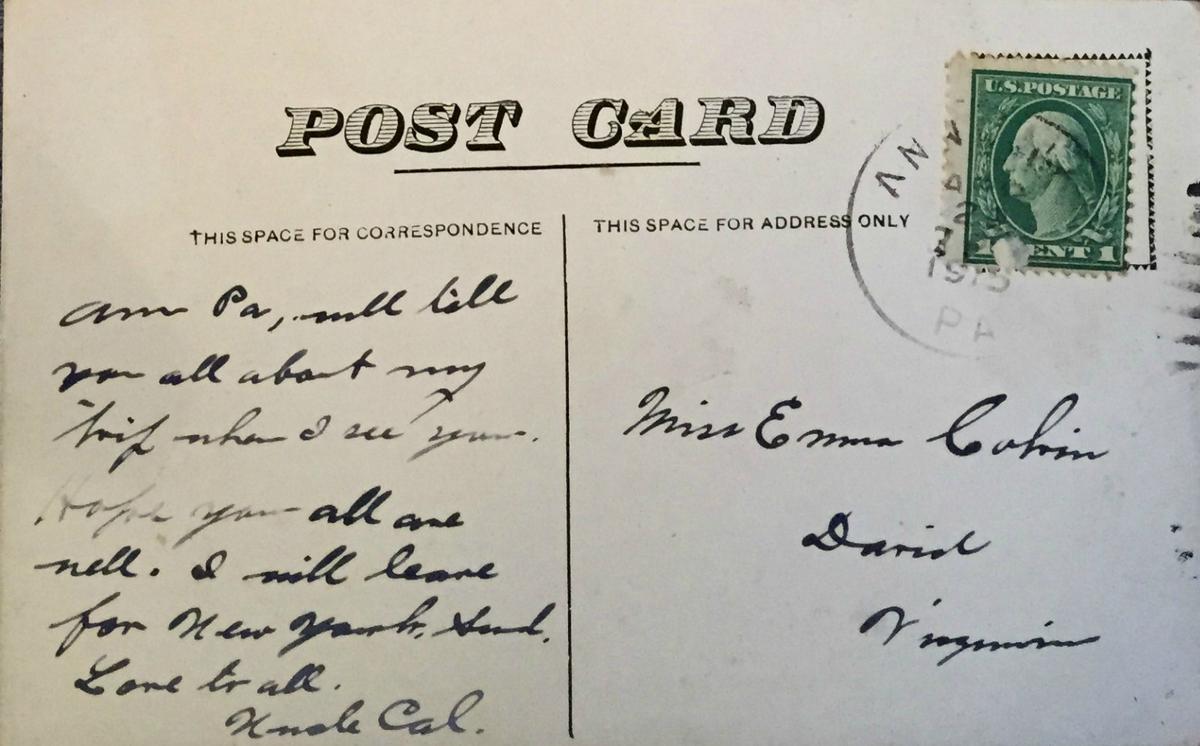 POST CARD
THIS SPACE FOR CORRESPONDENCE
THIS SPACE FOR ADDRESS ONLY
U.S. POSTAGE
CENT 1
1915
PA
Am Pa, will tell
you all about my
trip when I see you.
Hope you all are
well. I will leave
for New York, Sud.
Love to all.
Uncle Cal.
Miss Emma Colvin
David
Virginia